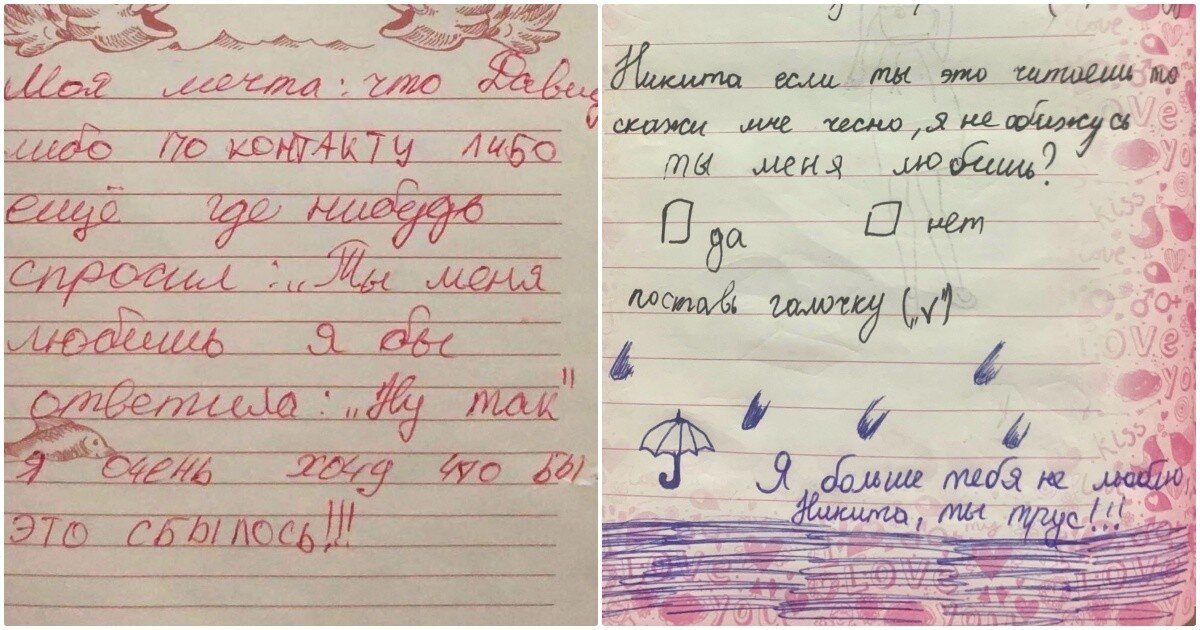 Моя мечта: что Давид
либо по контакту либо
ещё где нибудь
спросил: „Ты меня
любишь я бы
ответила: „Ну так"
я очень хочу что бы
это сбылось!!!
Никита если ты это читаешь то
скажи мне чесно, я не обижусь
ты меня любишь?
да нет
поставь галочку („√")
Я больше тебя не люблю,
Никита, ты трус!!!